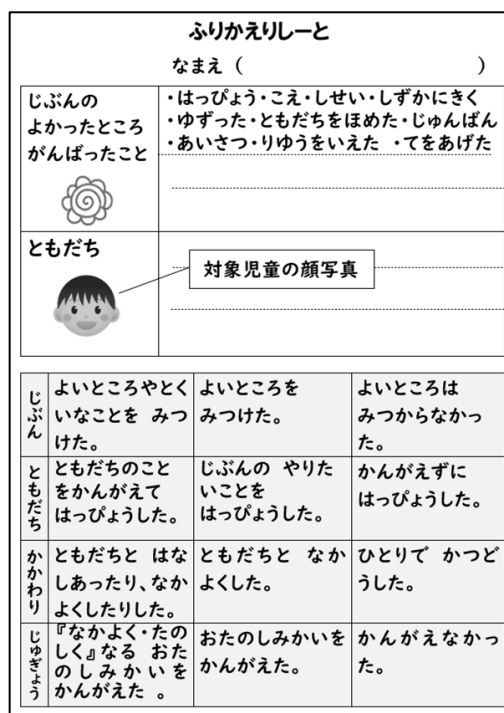 ふりかえりしーと
なまえ（　　　　　　　　　　）
じぶんの
よかったところ
がんばったこと
・はっぴょう・こえ・しせい・しずかにきく
・ゆずった・ともだちをほめた・じゅんばん
・あいさつ・りゆうをいえた　・てをあげた
ともだち
対象児童の顔写真
じぶん
よいところやとく
いなことを　みつ
けた。
よいところを
みつけた。
よいところは
みつからなかっ
た。
ともだち
ともだちのこと
をかんがえて
はっぴょうした。
じぶんの　やりた
いことを
はっぴょうした。
かんがえずに
はっぴょうした。
かかわり
ともだちと　はな
しあったり、なか
よくしたりした。
ともだちと　なか
よくした。
ひとりで　かつど
うした。
じゅぎょう
『なかよく・たの
しく』なる　おた
のしみかいを
かんがえた　。
おたのしみかいを
かんがえた。
かんがえなかっ
た。